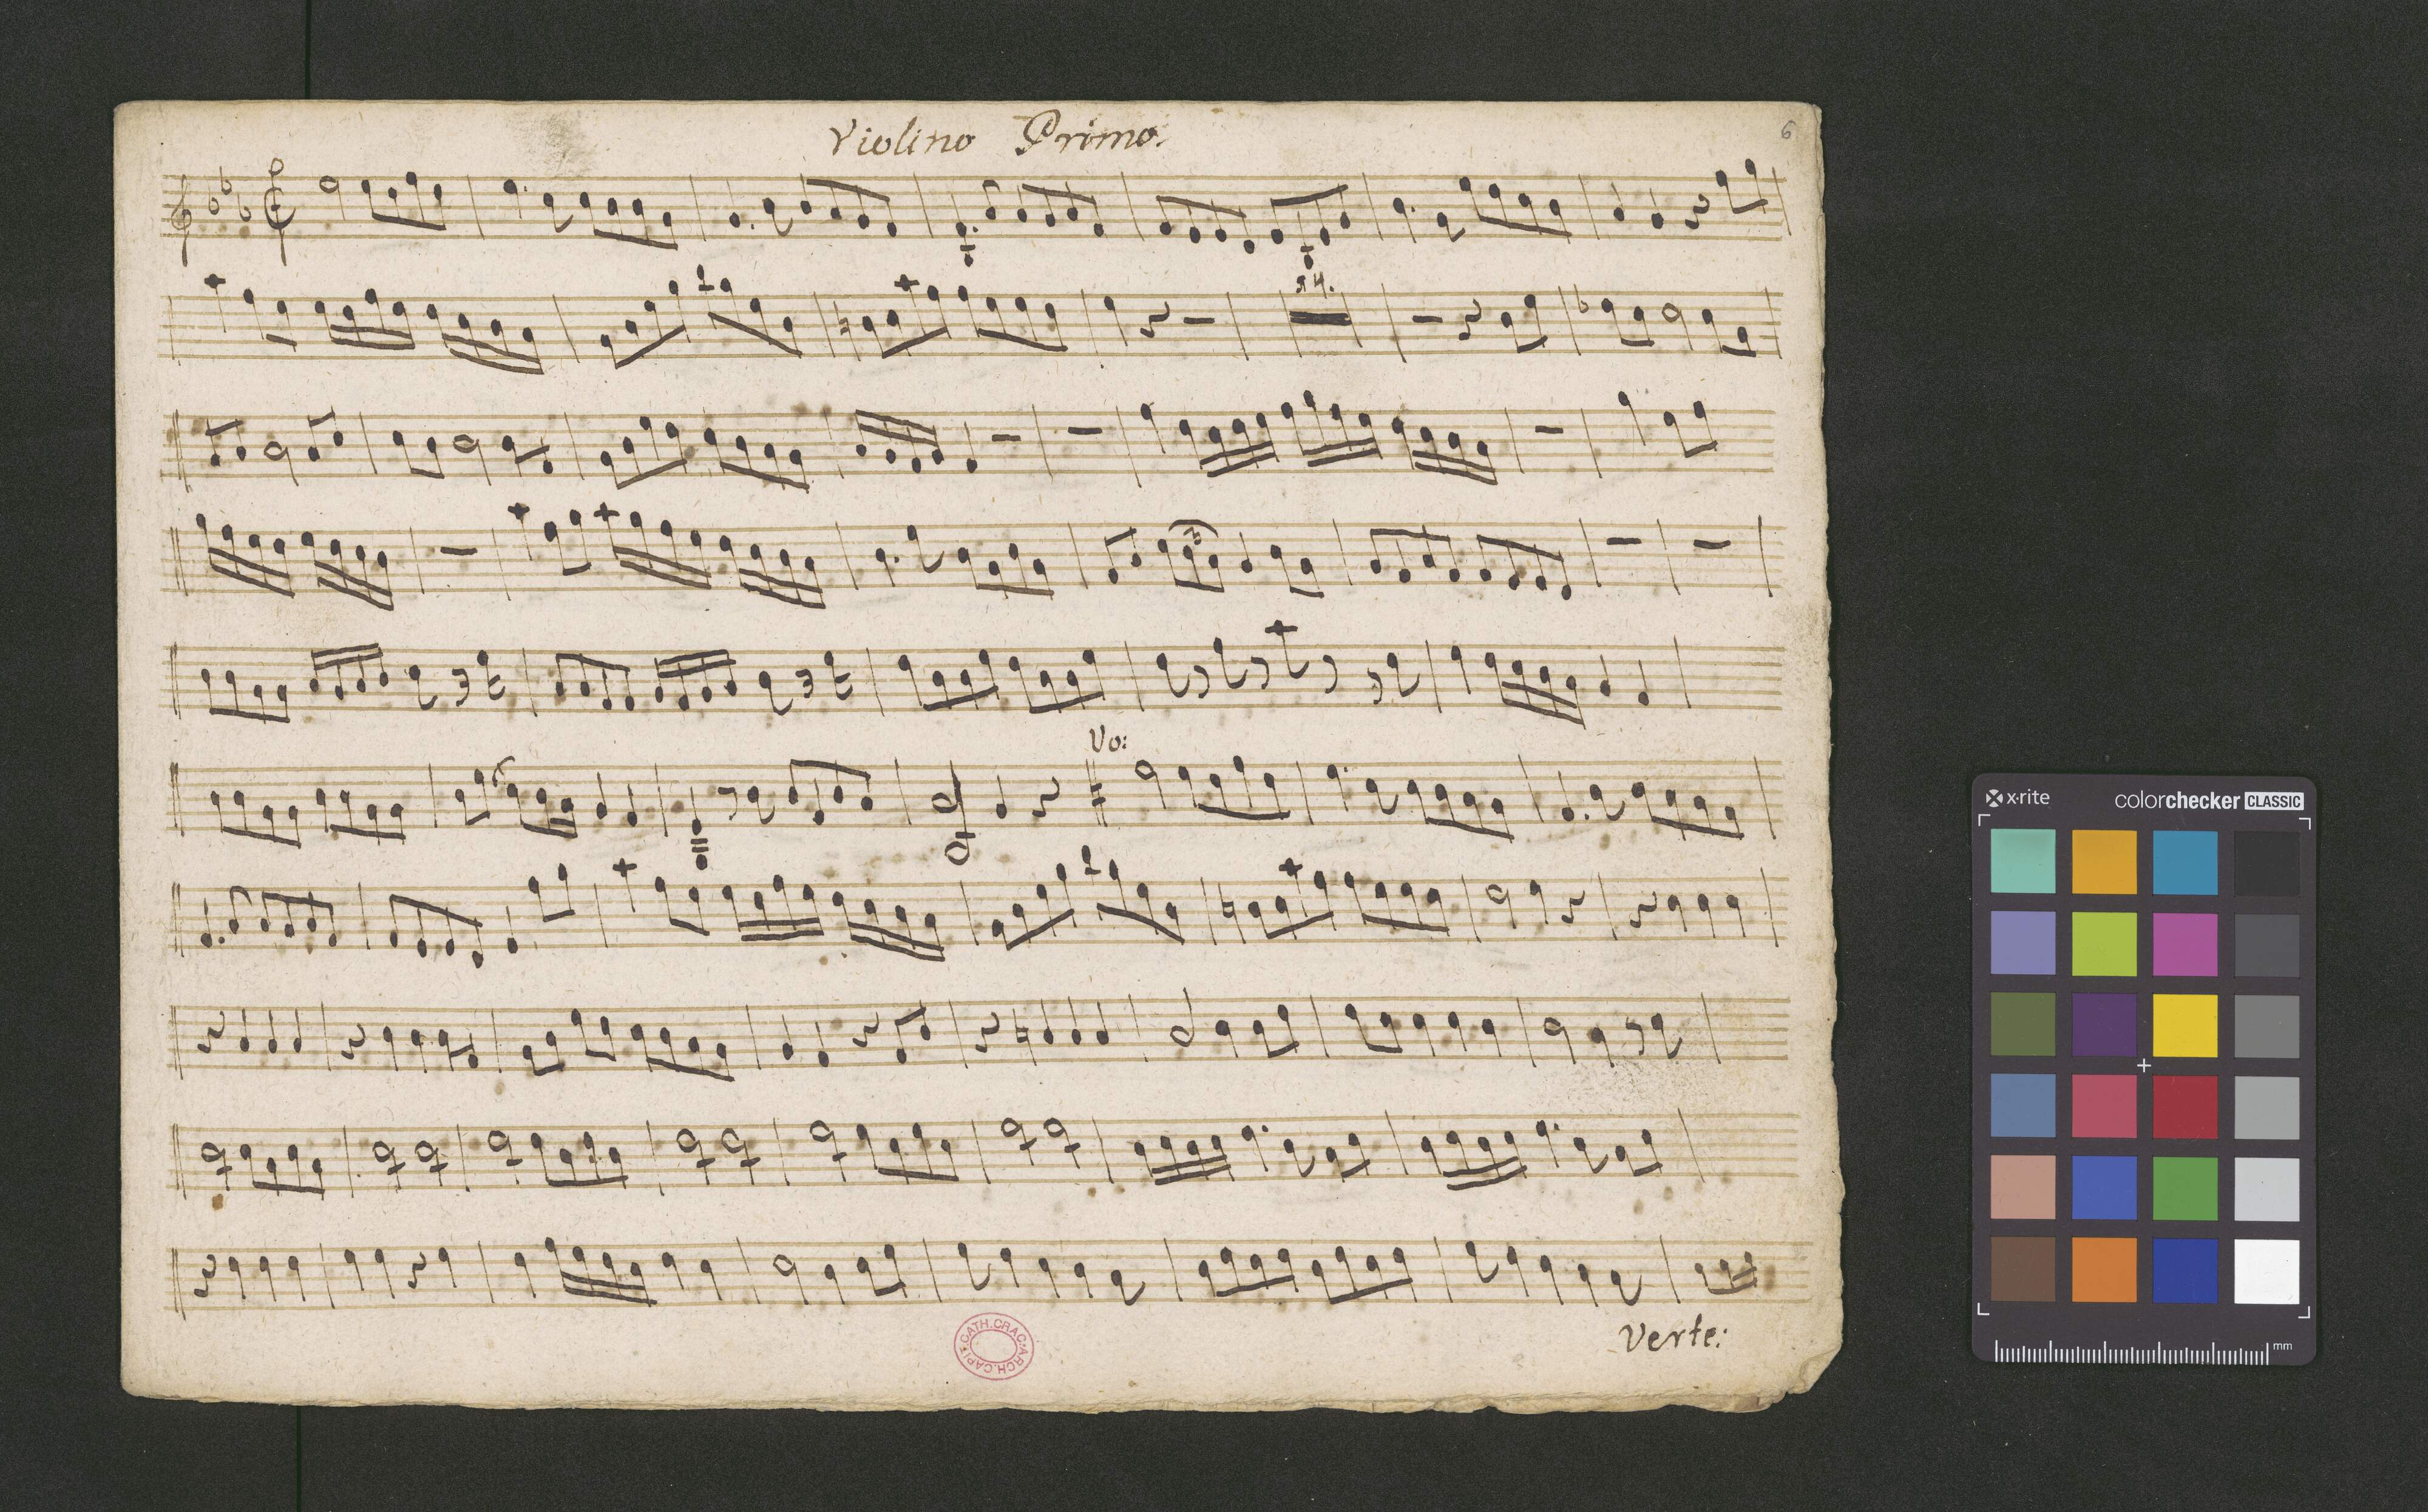 Violino Primo.
6
14.
Vo:
Verte:
CATH.CRAC.ARCH.CAPIT.
x-rite
colorchecker CLASSIC
mm